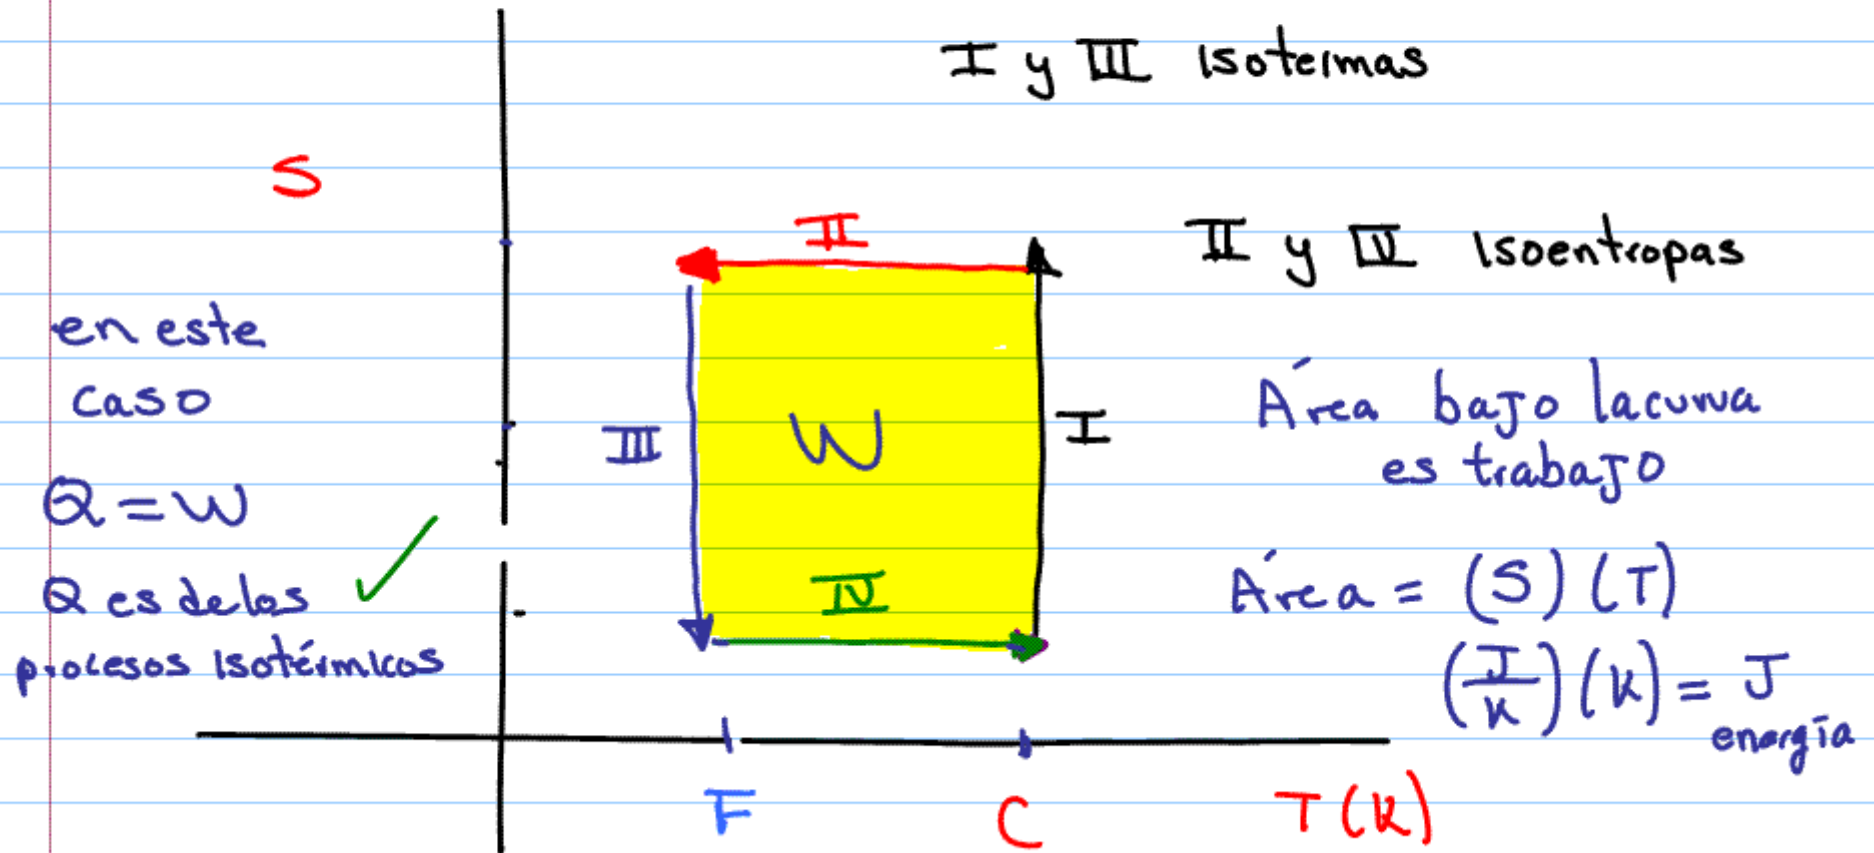 I y III Isotermas
S
II
II y IV Isoentropas
en este
caso
Área bajo la curva
es trabajo
III
W
I
Q = W
Q es de los
procesos Isotérmicos
IV
Área = (S) (T)
(J/K) (K) = J
energía
F
C
T (K)